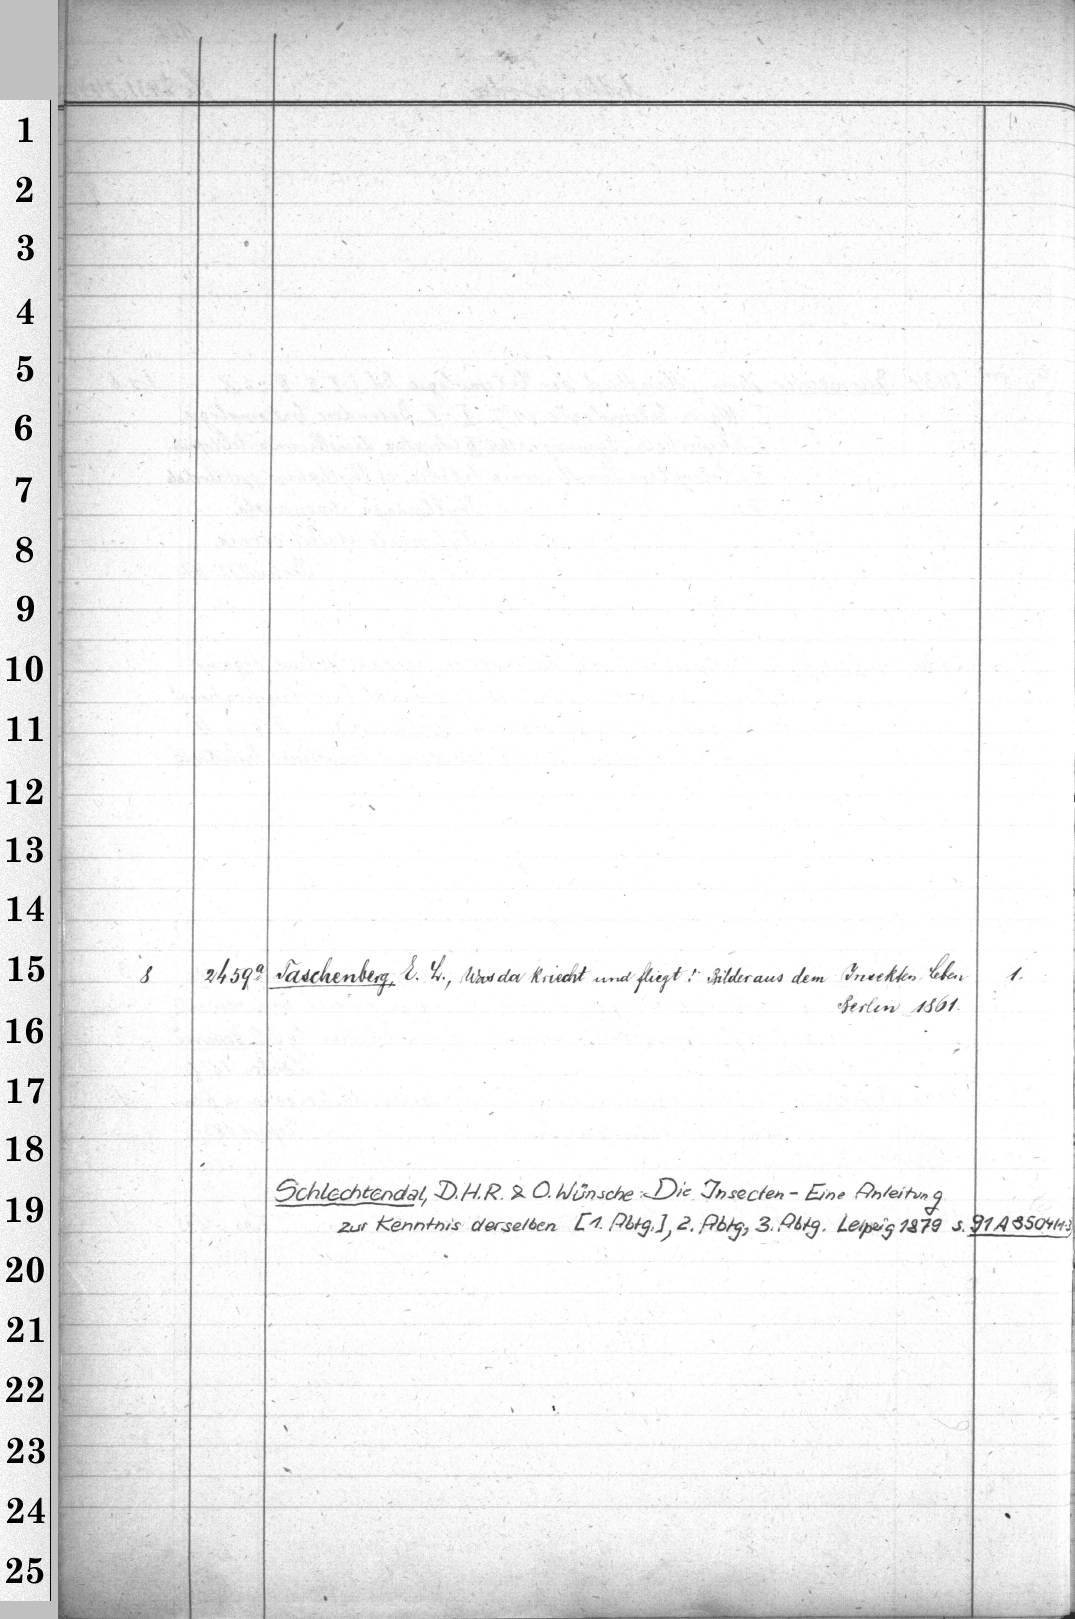 1
2
3
4
5
6
7
8
9
10
11
12
13
14
15
8 2459a Taschenberg, E. L., Was da kriecht und fliegt! Bilder aus dem Insekten Leben 1.
Berlin 1861.
16
17
18
19
Schlechtendal, D.H.R. & O. Wünsche: Die Insecten - Eine Anleitung
zur Kenntnis derselben [1. Abtg.], 2. Abtg, 3. Abtg. Leipzig 1879 s. 91 A 3504(1-3)
20
21
22
23
24
25